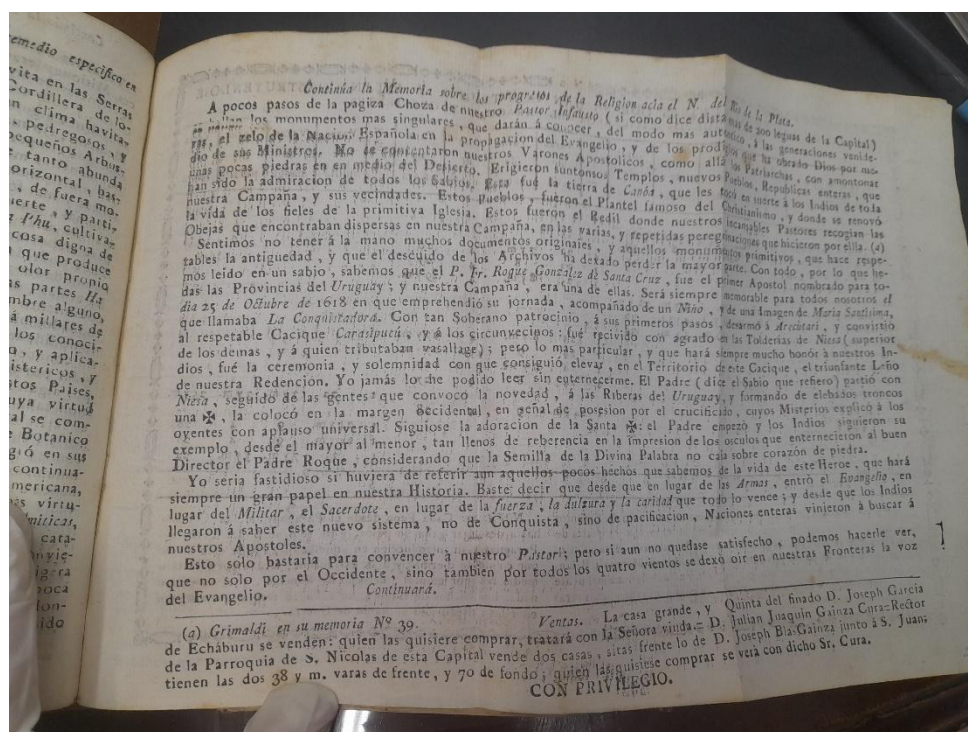 emedio especifico en
vita en las Serras
Cordillera de lo-
n clima havita-
, pedregosos, y
equeños Arbus-
e tanto abunda
orizontal, bas-
, de fuera mo-
uerte, y parti-
a Phu, cultivar
cosa digna de
que produce
olor propio
as partes Ha
mbre alguno,
á millares de
los conoci-
o, y aplica-
istericos, y
stos Paises,
uya virtud
al se com-
e Botanico
gió en sus
continua-
mericana,
as virtu-
miticas,
cara-
nvie-
igera
poca
lon-
uido
Continúa la Memoria sobre los progresos de la Religion acia el N. del Rio de la Plata.
A pocos pasos de la pagiza Choza de nuestro Pastor Infausto (si como dice dista mas de 200 leguas de la Capital)
se hallan los monumentos mas singulares, que darán á conocer, del modo mas autentico, á las generaciones venide-
ras, el zelo de la Nacion Española en la propagacion del Evangelio, y de los prodigios que ha obrado Dios por me-
dio de sus Ministros. No se contentaron nuestros Varones Apostolicos, como allá los Patriarchas, con amontonar
unas pocas piedras en en medio del Desierto. Erigieron suntuosos Templos, nuevos Pueblos, Republicas enteras, que
han sido la admiracion de todos los Sabios. Esta fué la tierra de Canáa, que les tocó en suerte á los Indios de toda
nuestra Campaña, y sus vecindades. Estos Pueblos, fueron el Plantel famoso del Christianismo, y donde se renovó
la vida de los fieles de la primitiva Iglesia. Estos fueron el Redil donde nuestros incansables Pastores recogian las
Obejas que encontraban dispersas en nuestra Campaña, en las varias, y repetidas peregrinaciones que hicieron por ellla. (a)
Sentimos no tener á la mano muchos documentos originales, y aquellos monumentos primitivos, que hace respe-
tables la antiguedad, y que el descuido de los Archivos ha dexado perder la mayor parte. Con todo, por lo que he-
mos leido en un sabio, sabemos que el P. Fr. Roque Gonzalez de Santa Cruz, fue el primer Apostol nombrado para to-
das las Provincias del Uruguay; y nuestra Campaña, era una de ellas. Será siempre memorable para todos nosotros el
dia 25 de Octubre de 1618 en que emprehendió su jornada, acompañado de un Niño, y de una Imagen de Maria Santisima,
que llamaba La Conquistadora. Con tan Soberano patrocinio, á sus primeros pasos, desarmó á Arecutari, y convirtió
al respetable Cacique Carasipucú, y á los circunvecinos: fué recivido con agrado en las Tolderias de Niesá (superior
de los demas, y á quien tributaban vasallage); pero lo mas particular, y que hará siempre mucho honór á nuestros In-
dios, fué la ceremonia, y solemnidad con que consiguió elevar, en el Territorio de este Cacique, el triunfante Leño
de nuestra Redencion. Yo jamás lo he podido leer sin enternecerme. El Padre (dice el Sabio que refiero) partió con
Niesa, seguido de las gentes que convocó la novedad, á las Riberas del Uruguay, y formando de elebados troncos
una ✠, la colocó en la margen occidental, en señal de posesion por el crucificado, cuyos Misterios explicó á los
oyentes con aplauso universal. Siguiose la adoracion de la Santa ✠: el Padre empezó y los Indios siguieron su
exemplo, desde el mayor al menor, tan llenos de reberencia en la impresion de los osculos que enternecieron al buen
Director el Padre Roque, considerando que la Semilla de la Divina Palabra no caía sobre corazón de piedra.
Yo seria fastidioso si huviera de referir aun aquellos pocos hechos que sabemos de la vida de este Heroe, que hará
siempre un gran papel en nuestra Historia. Baste decir que desde que en lugar de las Armas, entró el Evangelio, en
lugar del Militar, el Sacerdote, en lugar de la fuerza, la dulzura y la caridad que todo lo vence; y desde que los Indios
llegaron á saber este nuevo sistema, no de Conquista, sino de pacificacion, Naciones enteras vinieron á buscar á
nuestros Apostoles.
Esto solo bastaria para convencer á nuestro Pastor; pero si aun no quedase satisfecho, podemos hacerle ver,
que no solo por el Occidente, sino tambien por todos los quatro vientos se dexó oir en nuestras Fronteras la voz
del Evangelio. Continuará.
(a) Grimaldi en su memoria Nº 39. Ventas. La casa grande, y Quinta del finado D. Joseph Garcia
de Echáburu se venden: quien las quisiere comprar, tratará con la Señora viuda.= D. Julian Joaquin Gainza Cura=Rector
de la Parroquia de S. Nicolas de esta Capital vende dos casas, sitas frente lo de D. Joseph Bla-Gainza junto á S. Juan;
tienen las dos 38 y m. varas de frente, y 70 de fondo; quien las quisiese comprar se verá con dicho Sr. Cura.
CON PRIVILEGIO.